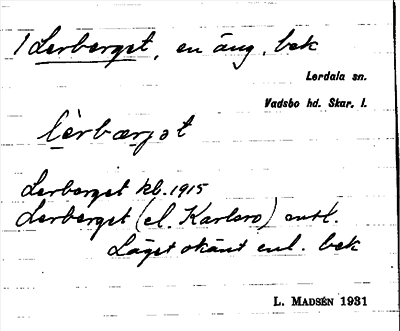 1 Lerberget, en äng, bek
Lerdala sn.
Vadsbo hd. Skar. l.
lèrbærjət
Lerberget kb. 1915
Lerberget (el. Karlsro) enst.
Läget okänt enl. bek
L. MADSÉN 1931